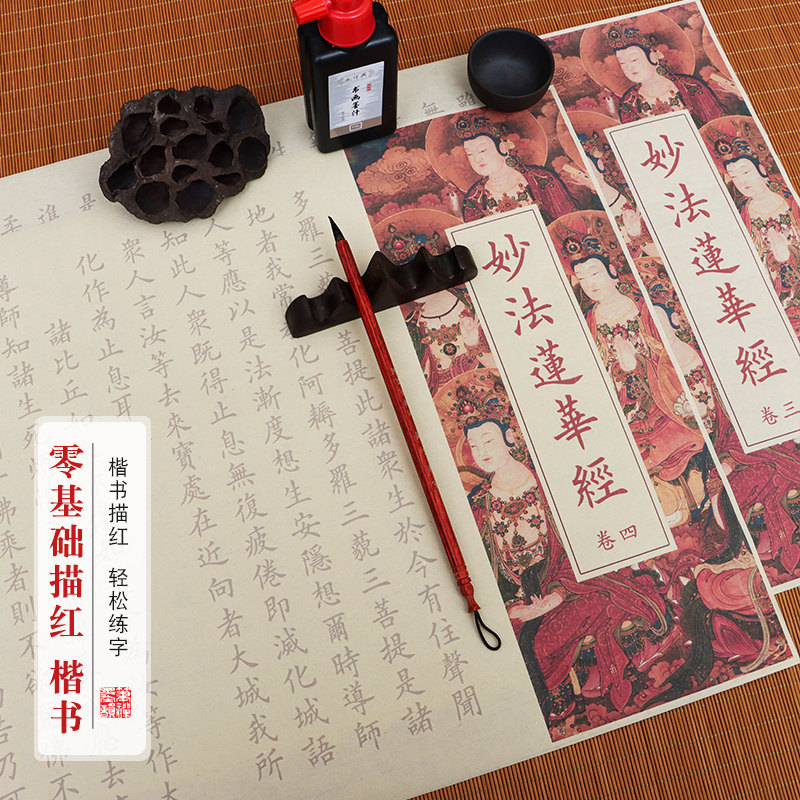 書画墨汁
妙法蓮華經
卷三
妙法蓮華經
卷四
無
多羅三
菩提此衆生於今有住聲聞
地者我常
化阿耨多羅三藐三菩提是諸
人等應以是法漸度想生安隱想爾時導師
知此人衆既得止息無復疲倦即滅化城語
衆人言汝等去來寶處在近向者大城我所
化作為止息耳
等作
諸比丘如
應去
導師知諸生死
是
誰
佛乘者則不欲
楷书描红 轻松练字
零基础描红 楷书